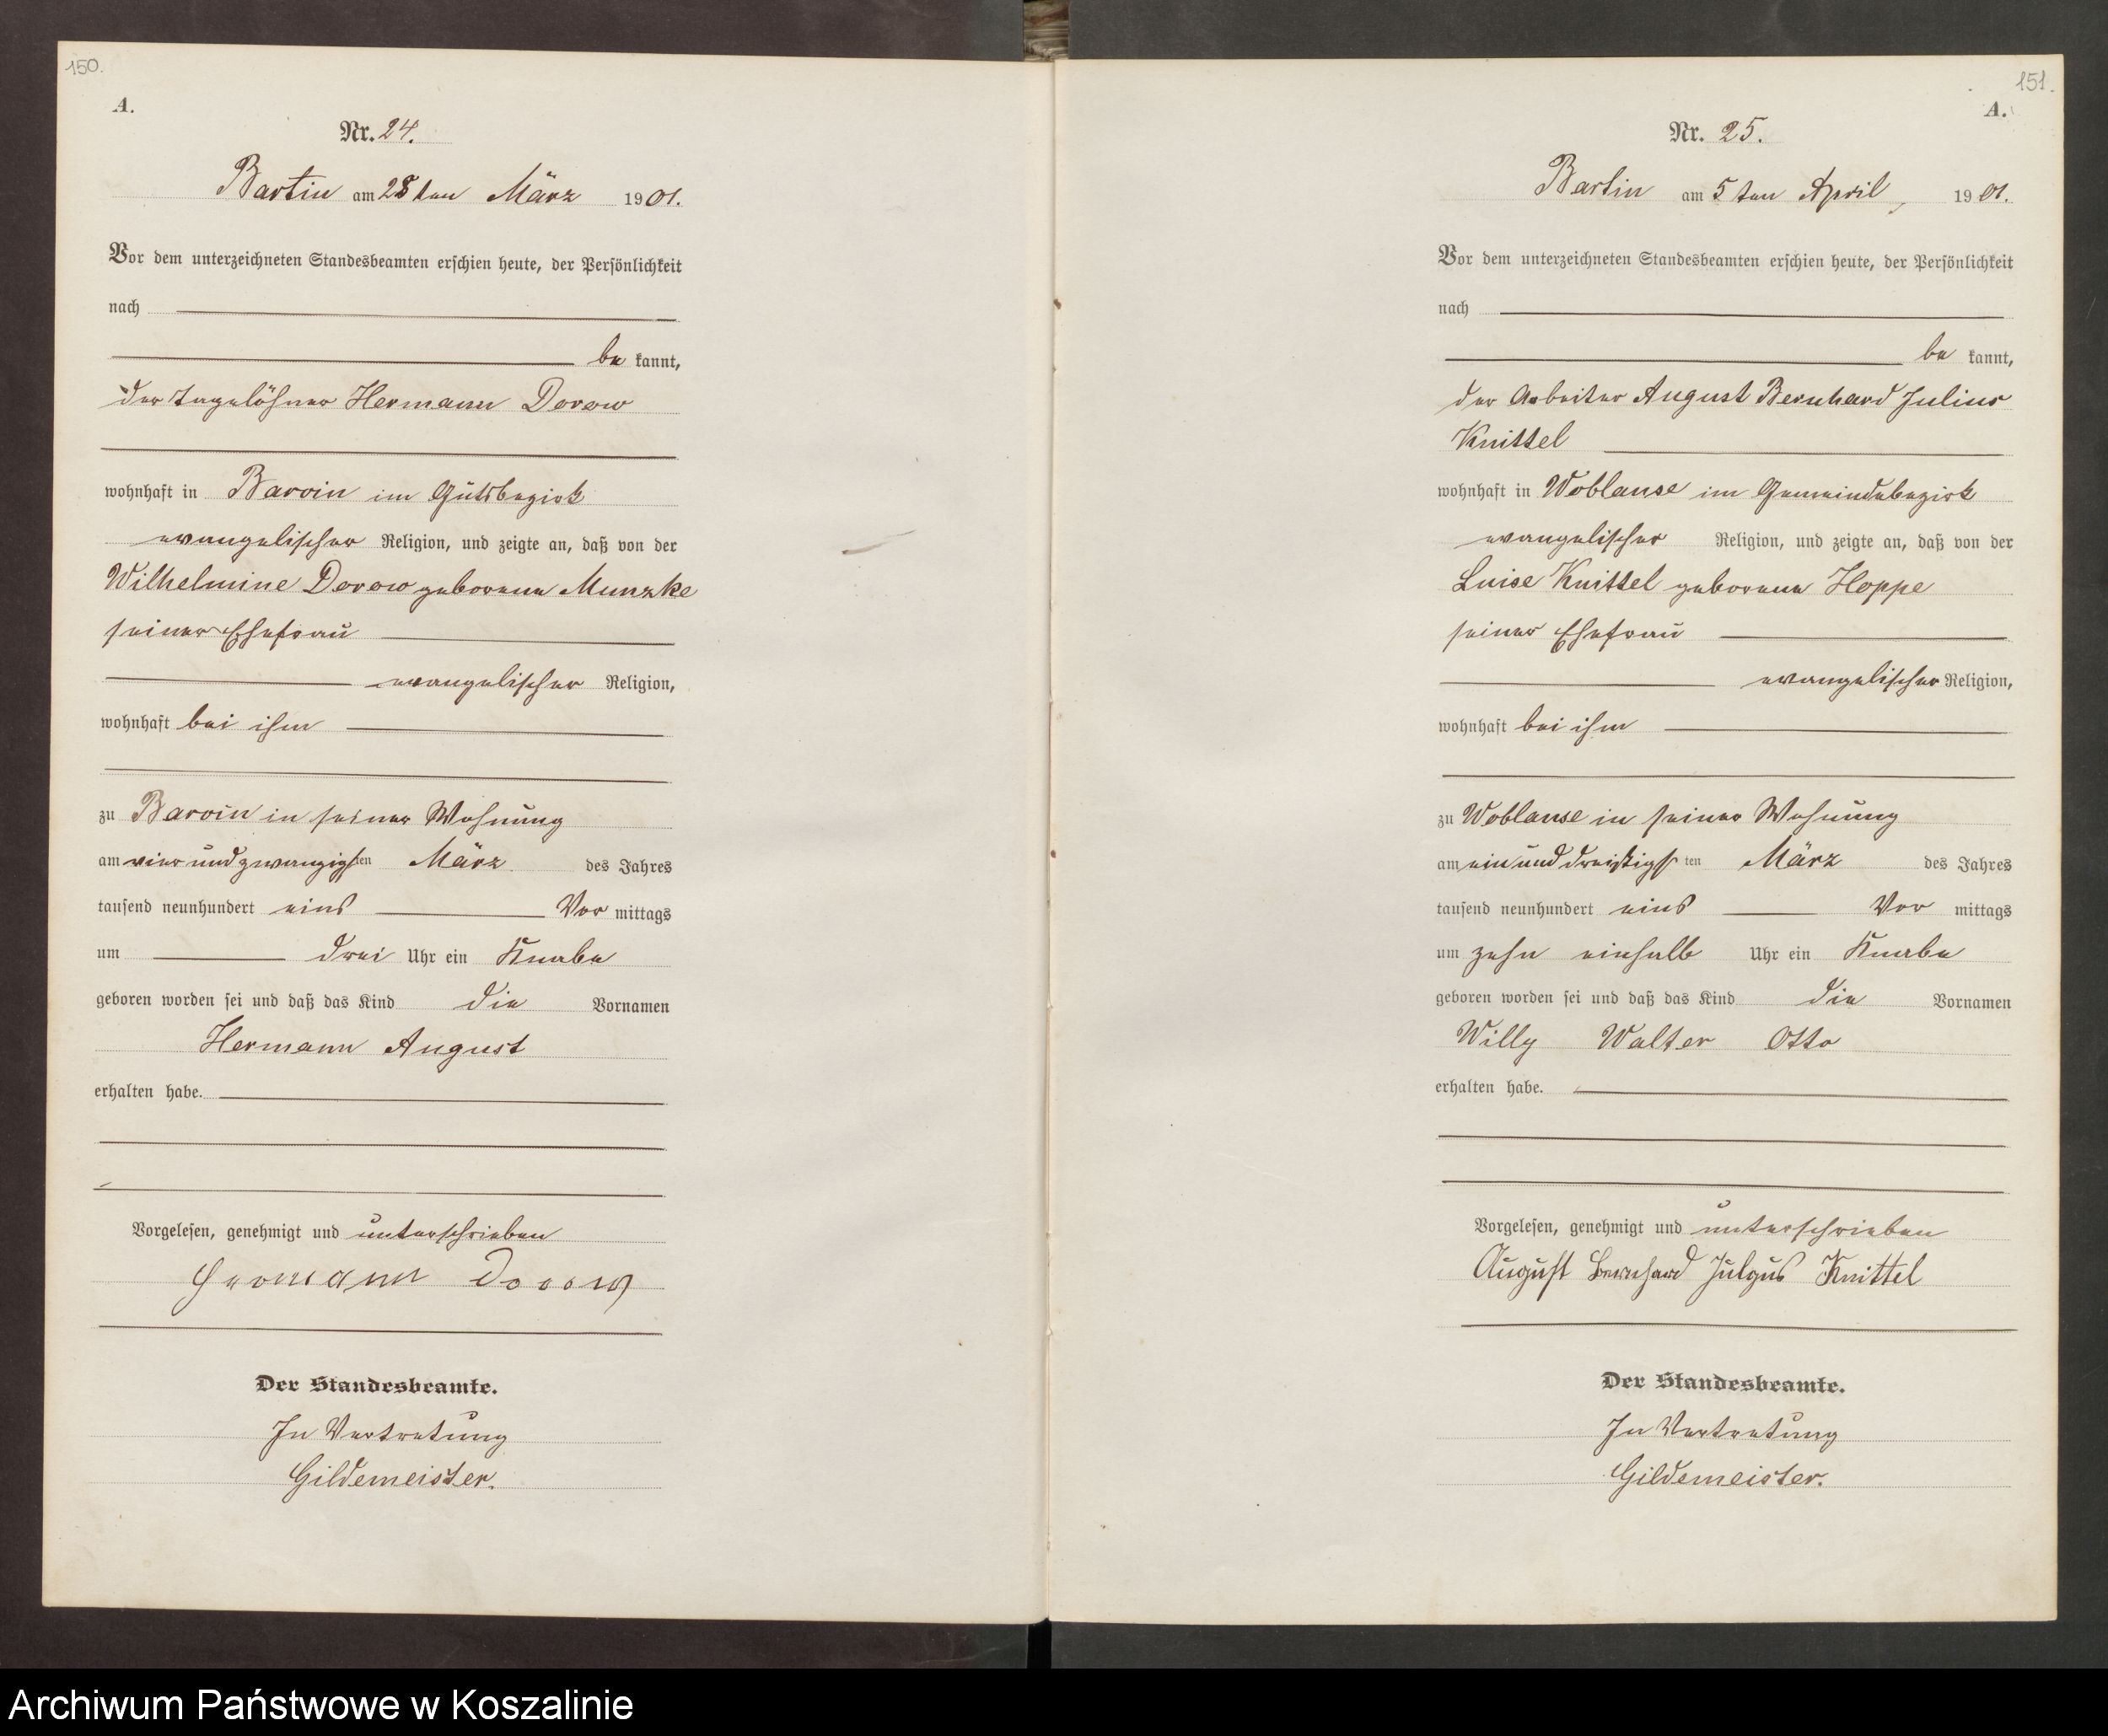 150.
A.
Nr. 24.
Bartin am 28ten März 1901.
Vor dem unterzeichneten Standesbeamten erschien heute, der Persönlichkeit
nach
be kannt,
der Tagelöhner Hermann Dorow
wohnhaft in Barvin im Gutsbezirk
evangelischer Religion, und zeigte an, daß von der
Wilhelmine Dorow geborene Munzke
seiner Ehefrau
evangelischer Religion,
wohnhaft bei ihm
zu Barvin in seiner Wohnung
am vier und zwanzigsten März des Jahres
tausend neunhundert eins Vor mittags
um drei Uhr ein Knabe
geboren worden sei und daß das Kind die Vornamen
Hermann August
erhalten habe.
Vorgelesen, genehmigt und unterschrieben
Hermann Dorow
Der Standesbeamte.
In Vertretung
Gildemeister.
151.
A.
Nr. 25.
Bartin am 5ten April, 1901.
Vor dem unterzeichneten Standesbeamten erschien heute, der Persönlichkeit
nach
be kannt,
der Arbeiter August Bernhard Julius
Knittel
wohnhaft in Woblanse im Gemeindebezirk
evangelischer Religion, und zeigte an, daß von der
Luise Knittel geborene Hoppe
seiner Ehefrau
evangelischer Religion,
wohnhaft bei ihm
zu Woblanse in seiner Wohnung
am ein und dreißigsten März des Jahres
tausend neunhundert eins Vor mittags
um zehn einhalb Uhr ein Knabe
geboren worden sei und daß das Kind die Vornamen
Willy Walter Otto
erhalten habe.
Vorgelesen, genehmigt und unterschrieben
August Bernhard Julyus Knittel
Der Standesbeamte.
In Vertretung
Gildemeister.
Archiwum Państwowe w Koszalinie